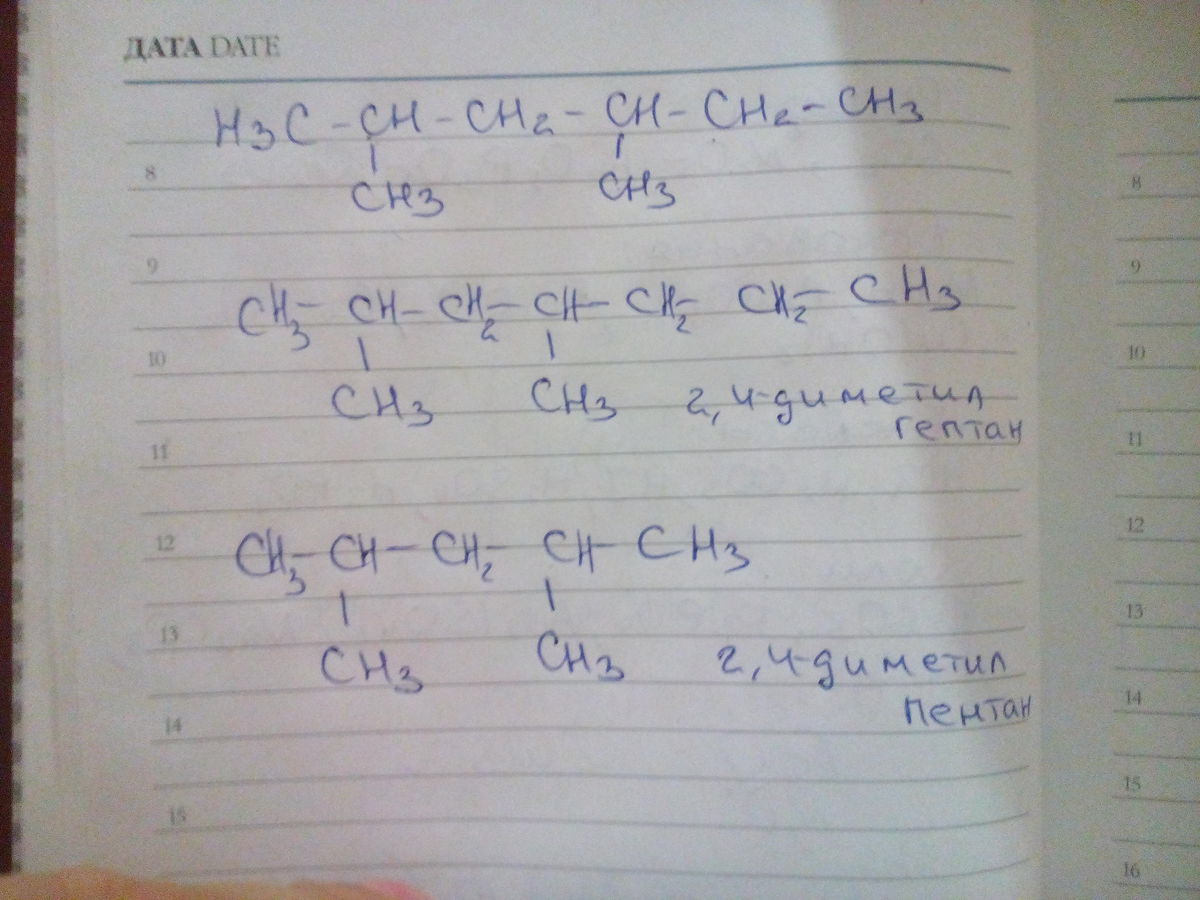 ДАТА DATE
H3C - CH - CH2 - CH - CH2 - CH3
CH3 CH3
8
8
9
9
CH3 - CH - CH2 - CH - CH2 - CH2 - CH3
10
10
CH3 CH3 2,4-диметил
гептан
11
11
12
12
CH3 - CH - CH2 - CH - CH3
13
13
CH3 CH3 2,4-диметил
пентан
14
14
15
15
16